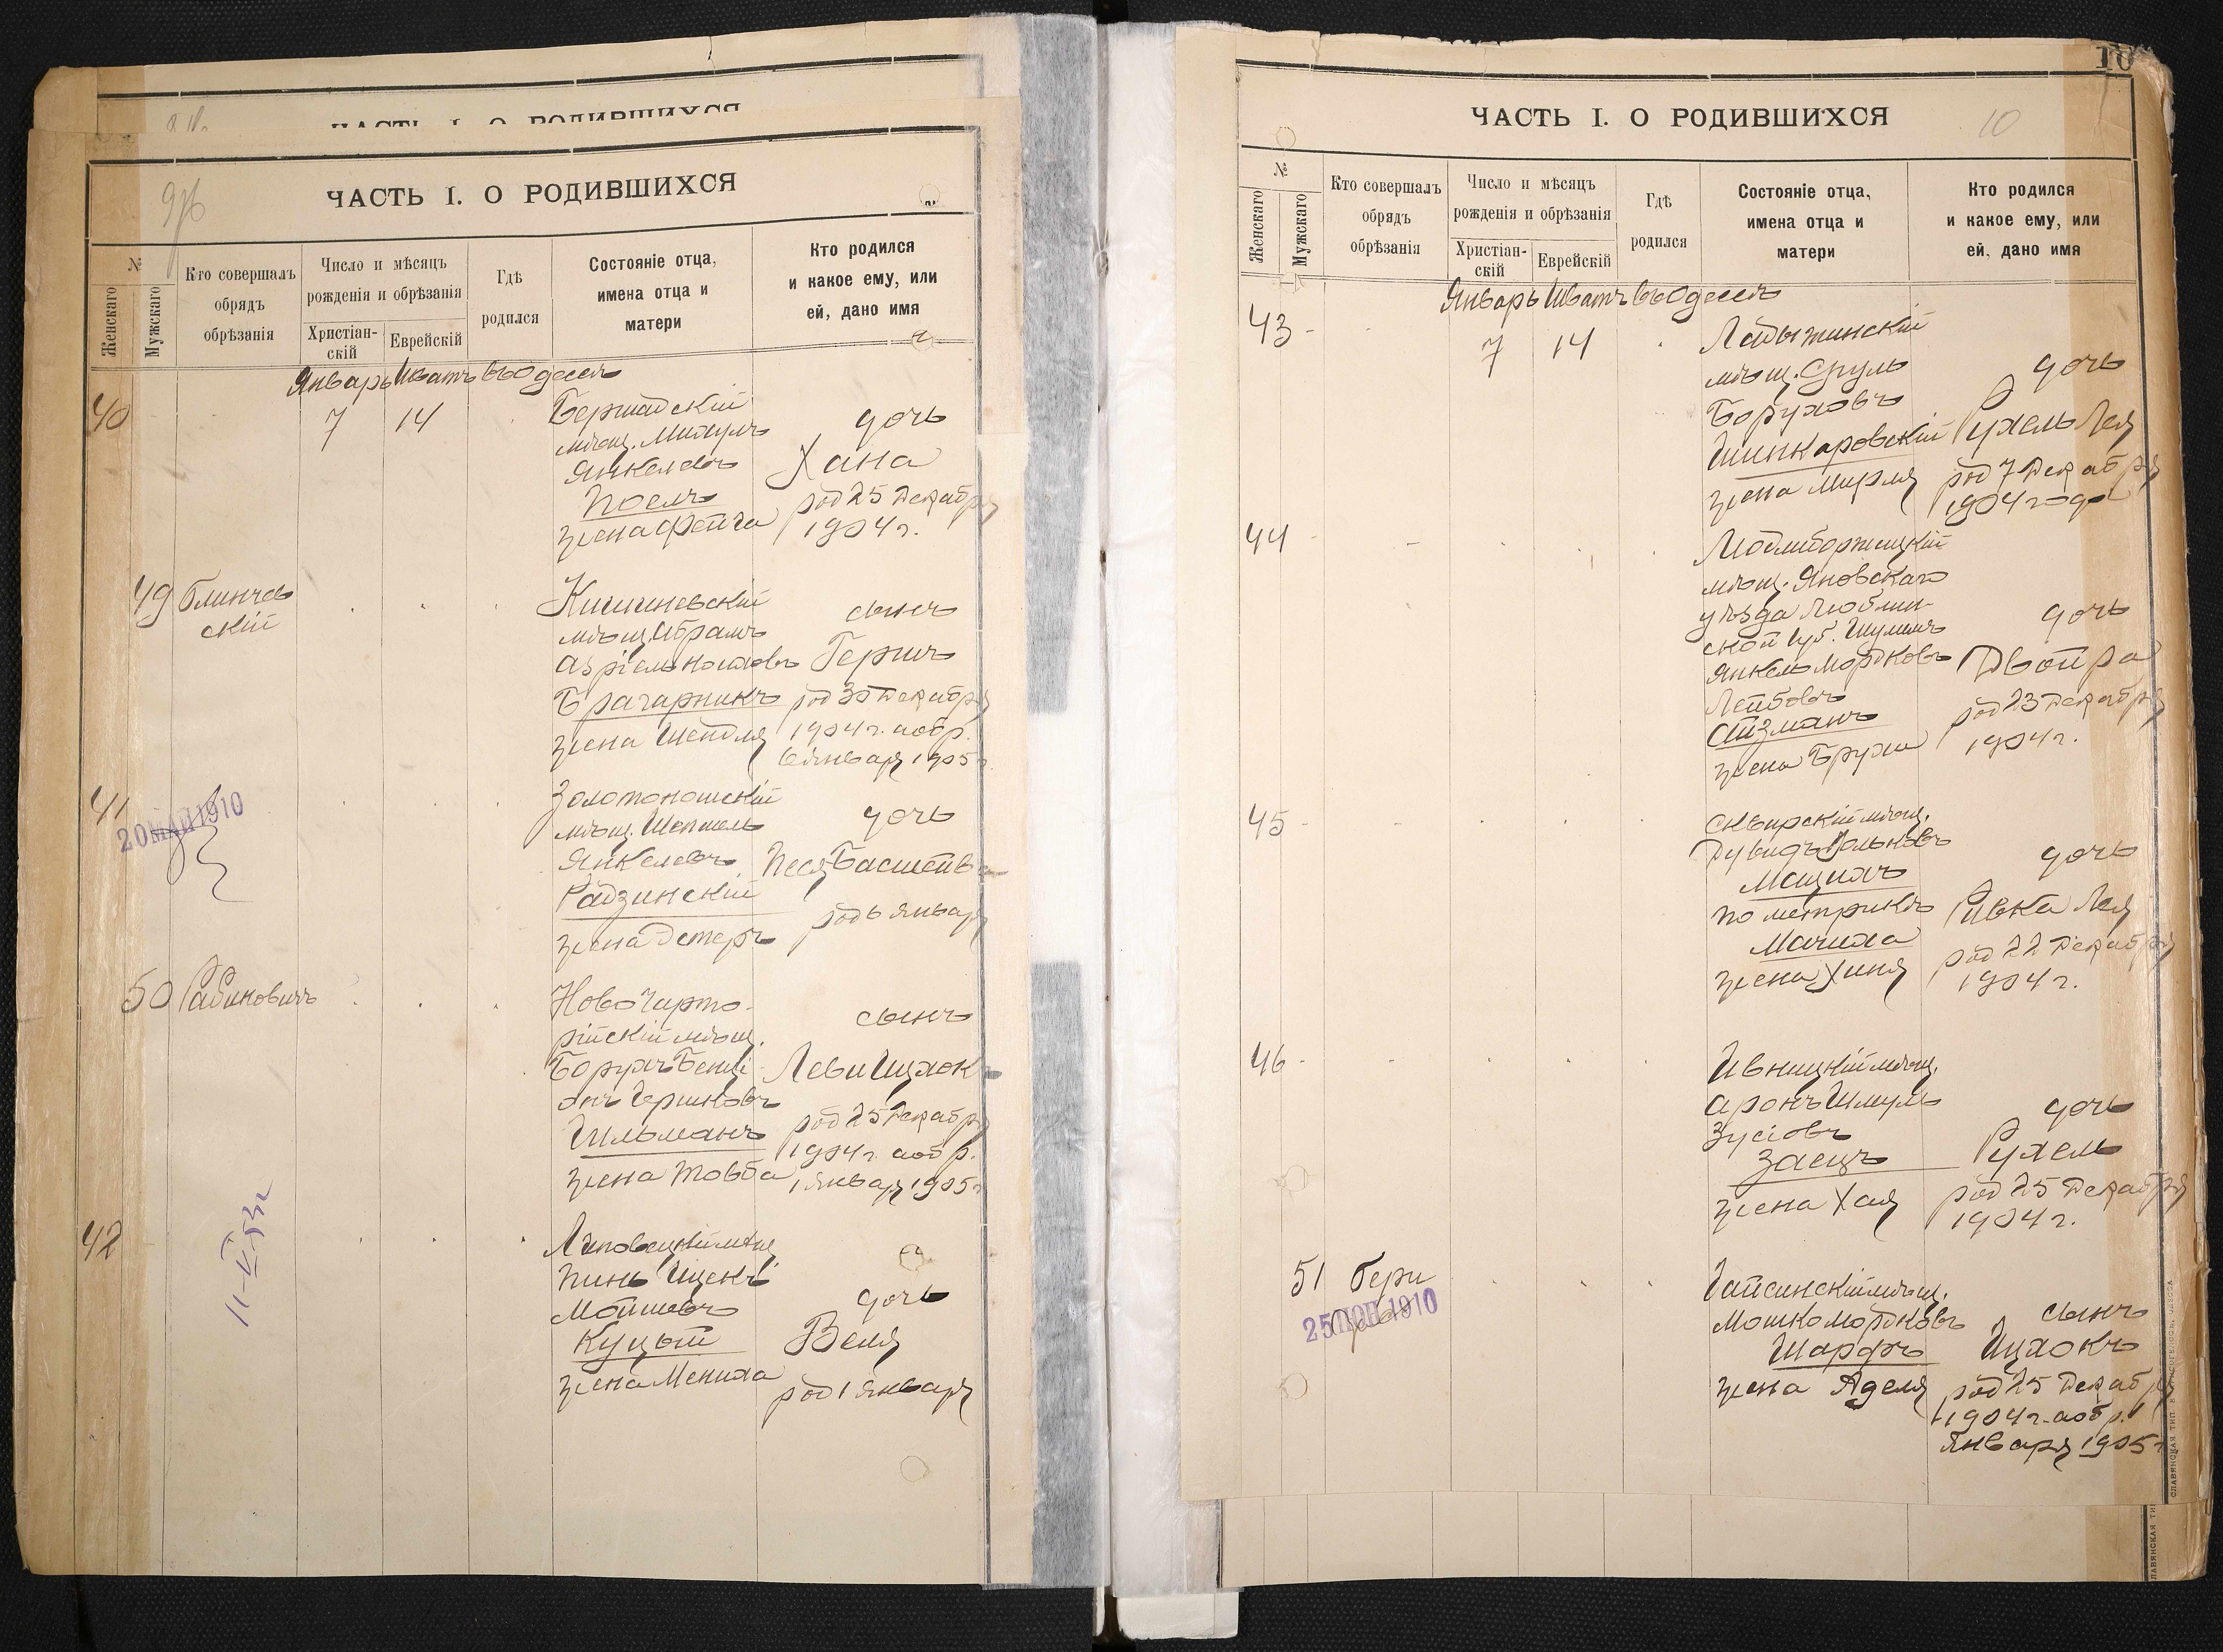 ЧАСТЬ I. О РОДИВШИХСЯ
ЧАСТЬ I. О РОДИВШИХСЯ
№
Женскаго
Мужскаго
Кто совершалъ
обрядъ
обрѣзанія
Число и мѣсяцъ
рожденія и обрѣзанія
Христіан-
скій
Еврейскій
Гдѣ
родился
Состояніе отца,
имена отца и
матери
Кто родился
и какое ему, или
ей, дано имя
Январь Шватъ въ Одессѣ
40
7
14
Бершадскій
мѣщ.
Янкелевъ
Поель
жена Фейга
дочь
Хана
род 25 Декабря
1904 г.
49
Блинчев
скій
Кишиневскій
мѣщ. Абрамъ
Азріель
Брагарникъ
жена Шейдля
сынъ
Гершъ
род 30 Декабря
1904 г. а обр.
6 января 1905 г.
41
20 МАЙ 1910
Золотоношскій
мѣщ.
Янкелевъ
Радзинскій
жена Эстеръ
дочь
Песя Басшейва
род 6 Января
50
Рабиновичъ
Ново Чарто-
рійскій мѣщ.
Борухъ Бенці-
онъ Гершковъ
Гильманъ
жена Товба
сынъ
Леви Ицхок
род 25 Декабря
1904 г. а обр.
1 Января 1905 г
42
11-V 53г
Липовецкій мѣщ
Пинь Ицекъ
Мошковъ
Куцый
жена Мениха
дочь
Веля
род 1 Января
10
ЧАСТЬ I. О РОДИВШИХСЯ
10
№
Женскаго
Мужскаго
Кто совершалъ
обрядъ
обрѣзанія
Число и мѣсяцъ
рожденія и обрѣзанія
Христіан-
скій
Еврейскій
Гдѣ
родился
Состояніе отца,
имена отца и
матери
Кто родился
и какое ему, или
ей, дано имя
Январь Шватъ въ Одессѣ
43
7
14
Ладыжинскій
мѣщ. Сруль
Боруховъ
Шинкаровскій
жена Мирля
дочь
Рухель Лея
род 7 Декабря
1904 года
44
Модлиборжицкій
мѣщ. Яновскаго
уѣзда Люблин-
ской губ. Шулимъ
Янкель Мордковъ
Лейбовъ
Айзманъ
жена Бруха
дочь
Двойра
род 23 Декабря
1904 г.
45
Сквирскій мѣщ.
Дувидъ Вольковъ
Мацихъ
по метрикѣ
Мачиха
жена Хиня
дочь
Ривка Лея
род 22 Декабря
1904 г.
46
Ивницкій мѣщ.
Аронъ Шмуль
Зусіовъ
Заецъ
жена Хая
дочь
Рухель
род 25 Декабря
1904 г.
51
25 1910
Гайсинскій мѣщ.
Мошко Мордковъ
Шарфъ
жена Аделя
сынъ
Ицхокъ
род 25 Декабря
1904 г. а обр. 1
Января 1905 г